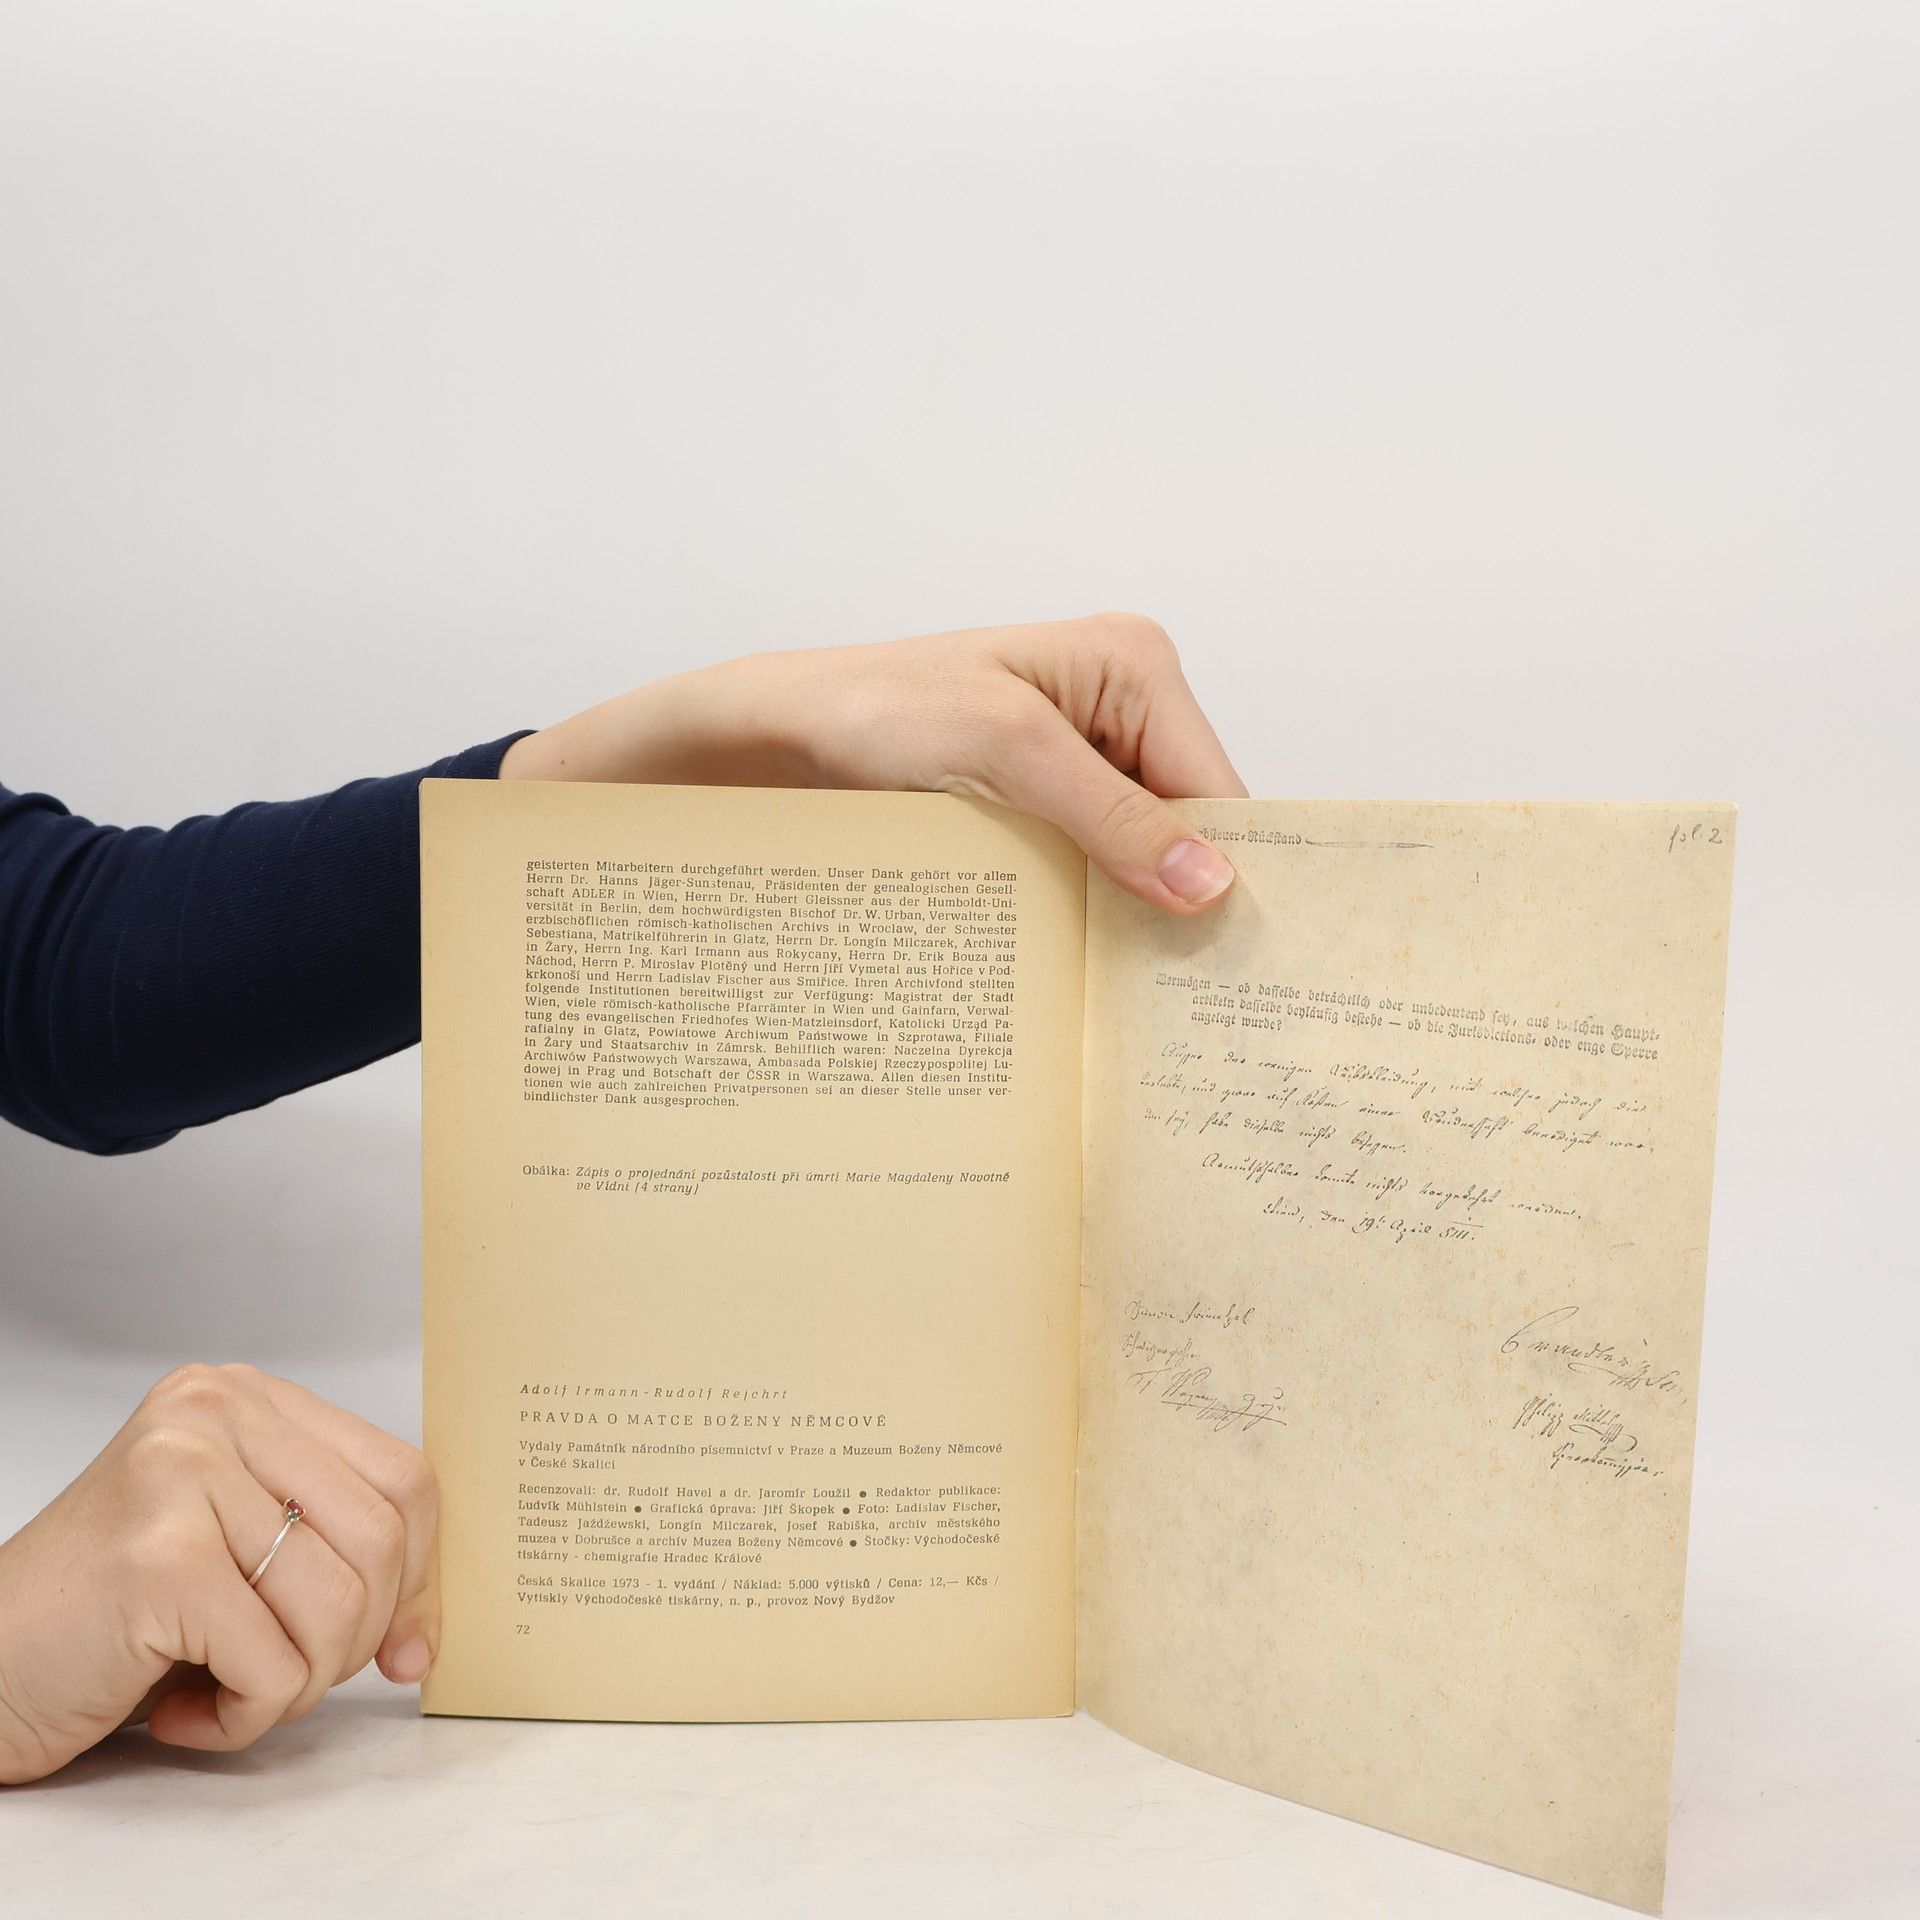 geisterten Mitarbeitern durchgeführt werden. Unser Dank gehört vor allem
Herrn Dr. Hanns Jäger-Sunstenau, Präsidenten der genealogischen Gesell-
schaft ADLER in Wien, Herrn Dr. Hubert Gleissner aus der Humboldt-Uni-
versität in Berlin, dem hochwürdigsten Bischof Dr. W. Urban, Verwalter des
erzbischöflichen römisch-katholischen Archivs in Wrocław, der Schwester
Sebestiana, Matrikelführerin in Glatz, Herrn Dr. Longín Milczarek, Archivar
in Żary, Herrn Ing. Karl Irmann aus Rokycany, Herrn Dr. Erik Bouza aus
Náchod, Herrn P. Miroslav Plotěný und Herrn Jiří Vymetal aus Hořice v Pod-
krkonoší und Herrn Ladislav Fischer aus Smiřice. Ihren Archivfond stellten
folgende Institutionen bereitwilligst zur Verfügung: Magistrat der Stadt
Wien, viele römisch-katholische Pfarrämter in Wien und Gainfarn, Verwal-
tung des evangelischen Friedhofes Wien-Matzleinsdorf, Katolicki Urząd Pa-
rafialny in Glatz, Powiatowe Archiwum Państwowe in Szprotawa, Filiale
in Żary und Staatsarchiv in Zámrsk. Behilflich waren: Naczelna Dyrekcja
Archiwów Państwowych Warszawa, Ambasada Polskiej Rzeczypospolitej Lu-
dowej in Prag und Botschaft der ČSSR in Warszawa. Allen diesen Institu-
tionen wie auch zahlreichen Privatpersonen sei an dieser Stelle unser ver-
bindlichster Dank ausgesprochen.
Obálka: Zápis o projednání pozůstalosti při úmrtí Marie Magdaleny Novotné
ve Vídni (4 strany)
Adolf Irmann - Rudolf Rejchrt
PRAVDA O MATCE BOŽENY NĚMCOVÉ
Vydaly Památník národního písemnictví v Praze a Muzeum Boženy Němcové
v České Skalici
Recenzovali: dr. Rudolf Havel a dr. Jaromír Loužil ● Redaktor publikace:
Ludvík Mühlstein ● Grafická úprava: Jiří Škopek ● Foto: Ladislav Fischer,
Tadeusz Jaźdźewski, Longín Milczarek, Josef Rabiška, archív městského
muzea v Dobrušce a archív Muzea Boženy Němcové ● Štočky: Východočeské
tiskárny - chemigrafie Hradec Králové
Česká Skalice 1973 - 1. vydání / Náklad: 5.000 výtisků / Cena: 12,— Kčs /
Vytiskly Východočeské tiskárny, n. p., provoz Nový Bydžov
72
rbsteuer-Rückstand
fol. 2
Vermögen — ob dasselbe beträchtlich oder unbedeutend sey, aus welchen Haupt-
artikeln dasselbe beyläufig bestehe — ob die Jurisdictions- oder enge Sperre
angelegt wurde?
Wien, den 19 April